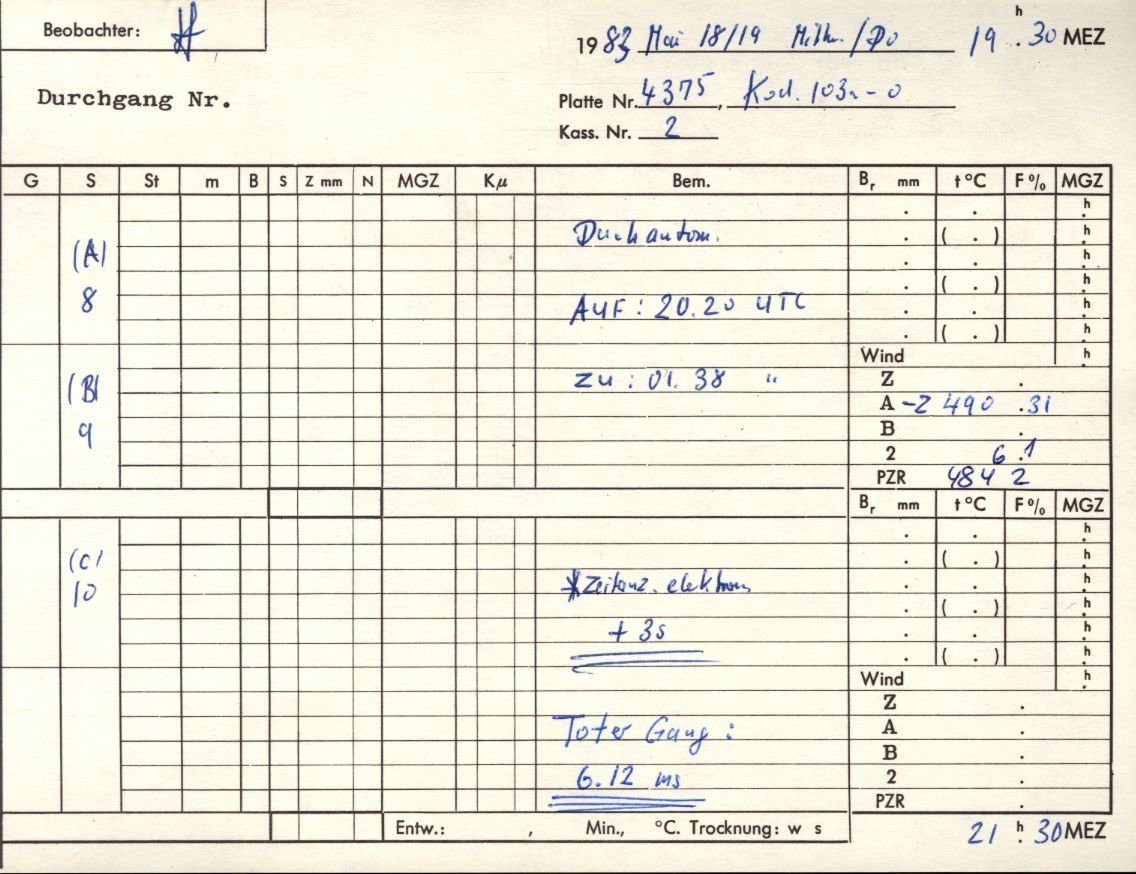 Beobachter:
1983 Mai 18/19 Mittw./Do 19 h . 30 MEZ
Durchgang Nr.
Platte Nr. 4375, Kod. 103a-O
Kass. Nr. 2
G S St m B S Z mm N MGZ Kμ Bem. Br mm t °C F % MGZ
. . h
(A) Durchautom. . ( . ) h
. . h
8 . ( . ) h
AUF: 20.20 UTC . . h
. ( . ) h
Wind h
(B) ZU: 01.38 " Z .
A -2 490 .31
9 B .
2 6 .1
PZR 484 2
Br mm t °C F % MGZ
. . h
(C) . ( . ) h
10 *Zeitanz. elektron. . . h
. ( . ) h
+ 3s . . h
. ( . ) h
Wind h
Z .
Toter Gang: A .
B .
6.12 ms 2 .
PZR .
Entw.: , Min., °C. Trocknung: w s 21 h . 30 MEZ